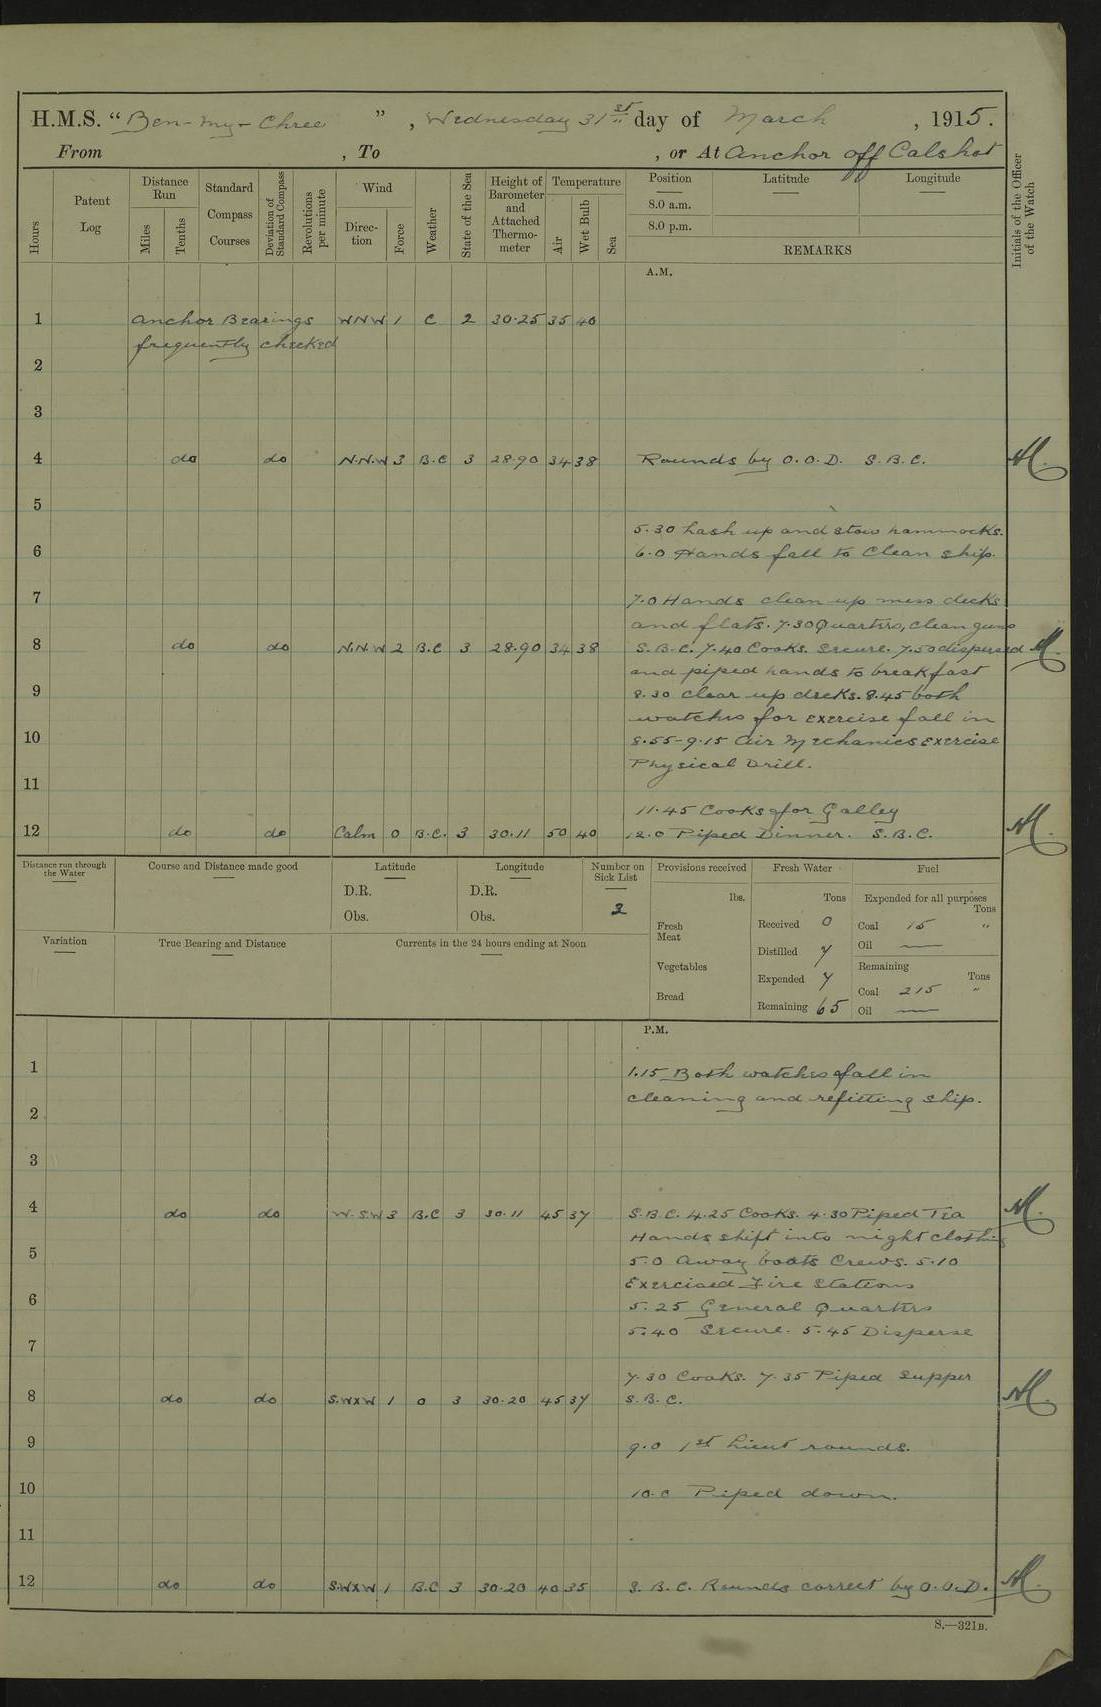 H.M.S. “ Ben-my-Chree ” , Wednesday 31st day of March , 1915.
From , To , or At Anchor off Calshot
Hours
Patent Log
Distance Run
Miles
Tenths
Standard Compass Courses
Deviation of Standard Compass
Revolutions per minute
Wind
Direction
Force
Weather
State of the Sea
Height of Barometer and Attached Thermometer
Temperature
Air
Wet Bulb
Sea
Position Latitude Longitude
8.0 a.m.
8.0 p.m.
REMARKS
Initials of the Officer of the Watch
A.M.
1 Anchor Bearings WNW 1 C 2 30.25 35 40
frequently checked
2
3
4 do do N.N.W 3 B.C 3 28.90 34 38 Rounds by O.O.D. S.B.C.
5
5.30 Lash up and stow hammocks.
6 6.0 Hands fall to Clean ship.
7 7.0 Hands clean up mess decks
and flats. 7.30 Quarters, clean guns
8 do do N.N.W 2 B.C 3 28.90 34 38 S.B.C. 7.40 Cooks. Secure. 7.50 dispersed
and piped hands to breakfast
9 8.30 Clear up decks. 8.45 both
watches for exercise fall in
10 8.55-9.15 Air Mechanics Exercise
Physical Drill.
11
11.45 Cooks for Galley
12 do do Calm 0 B.C. 3 30.11 50 40 12.0 Piped Dinner. S.B.C.
Distance run through the Water
Course and Distance made good
Latitude
D.R.
Obs.
Longitude
D.R.
Obs.
Number on Sick List
3
Provisions received
lbs.
Fresh Meat
Vegetables
Bread
Fresh Water
Tons
Received 0
Distilled 7
Expended 7
Remaining 65
Fuel
Expended for all purposes
Tons
Coal 15 "
Oil —
Remaining
Tons
Coal 215 "
Oil —
Variation
True Bearing and Distance
Currents in the 24 hours ending at Noon
P.M.
1 1.15 Both watches fall in
cleaning and refitting ship.
2
3
4 do do W.S.W 3 B.C 3 30.11 45 37 S.B.C. 4.25 Cooks. 4.30 Piped Tea
Hands shift into night clothing
5 5.0 Away boats Crews. 5.10
Exercised Fire Stations
6 5.25 General Quarters
5.40 Secure. 5.45 Disperse
7
7.30 Cooks. 7.35 Piped Supper
8 do do S.WxW 1 0 3 30.20 45 37 S.B.C.
9 9.0 1st Lieut rounds.
10 10.0 Piped down.
11
12 do do S.WxW 1 B.C 3 30.20 40 35 S.B.C. Rounds correct by O.O.D.
S.—321B.